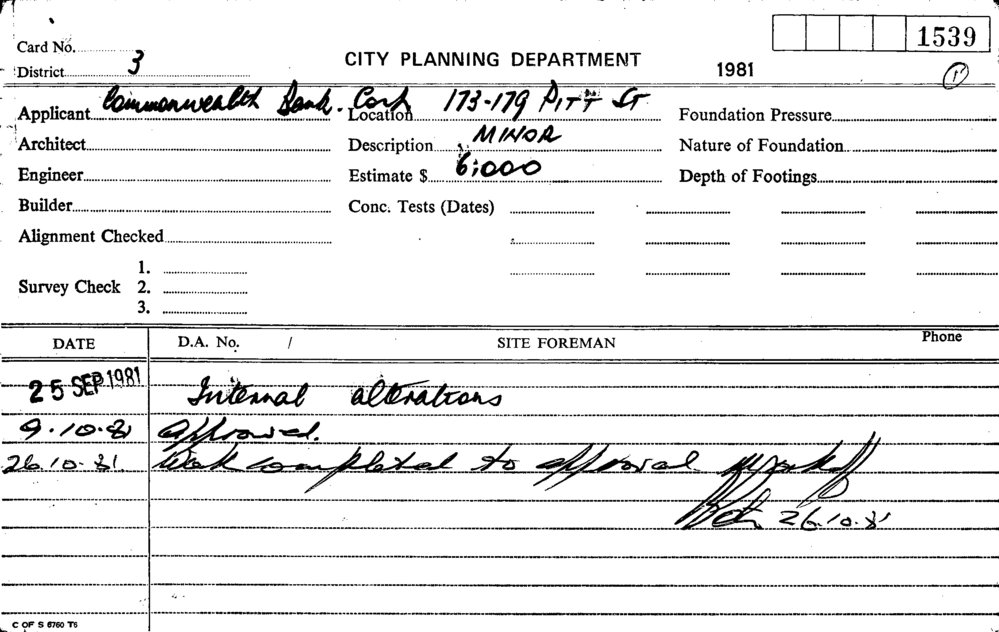 1539
Card No.
CITY PLANNING DEPARTMENT
1981
1
District 3
Applicant Commonwealth Bank. Corp Location 173-179 PITT ST Foundation Pressure
Architect Description MINOR Nature of Foundation
Engineer Estimate $ 6,000 Depth of Footings
Builder Conc. Tests (Dates)
Alignment Checked
1.
Survey Check 2.
3.
DATE D.A. No. / SITE FOREMAN Phone
25 SEP 1981 Internal alterations
9.10.81 Approved.
26.10.81 Work completed to approval
26.10.81
C OF S 6760 T6